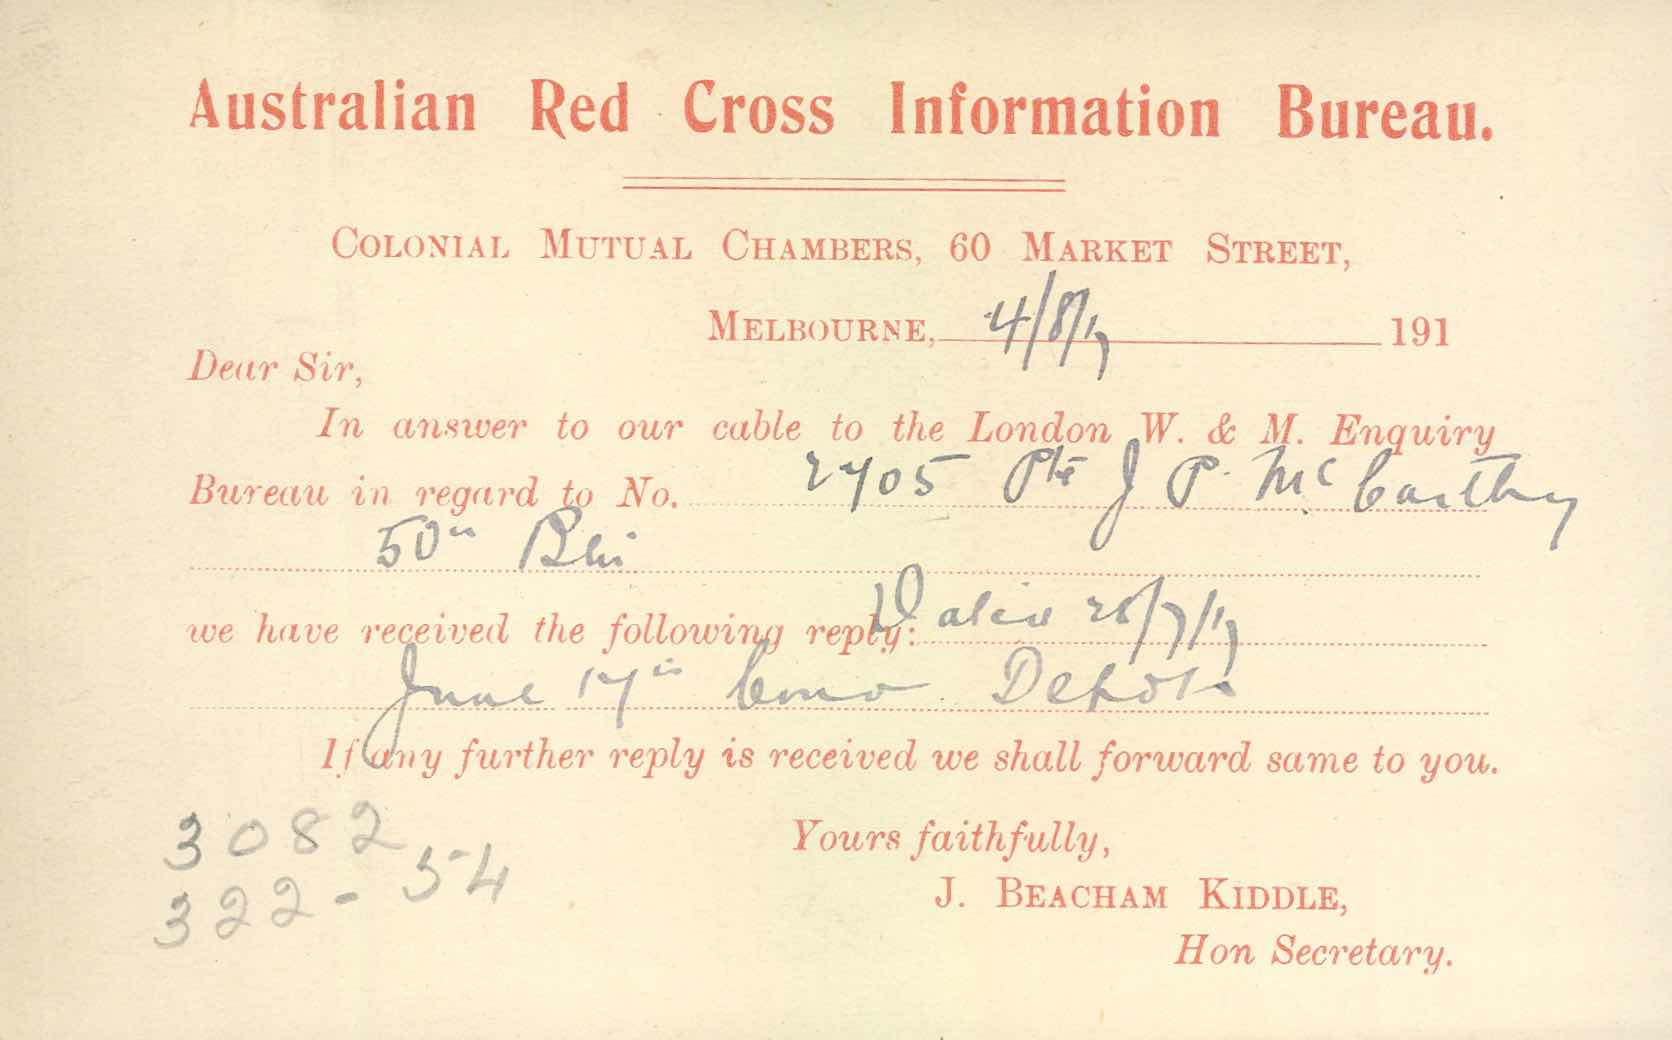 Australian Red Cross Information Bureau.
COLONIAL MUTUAL CHAMBERS, 60 MARKET STREET,
MELBOURNE, 4/8/17 191
Dear Sir,
In answer to our cable to the London W. & M. Enquiry
Bureau in regard to No. 2705 Pte J P. McCarthy
50th Bn
we have received the following reply: Dated 28/7/17
June 17th Como Depot
If any further reply is received we shall forward same to you.
3082
322-54
Yours faithfully,
J. BEACHAM KIDDLE,
Hon Secretary.